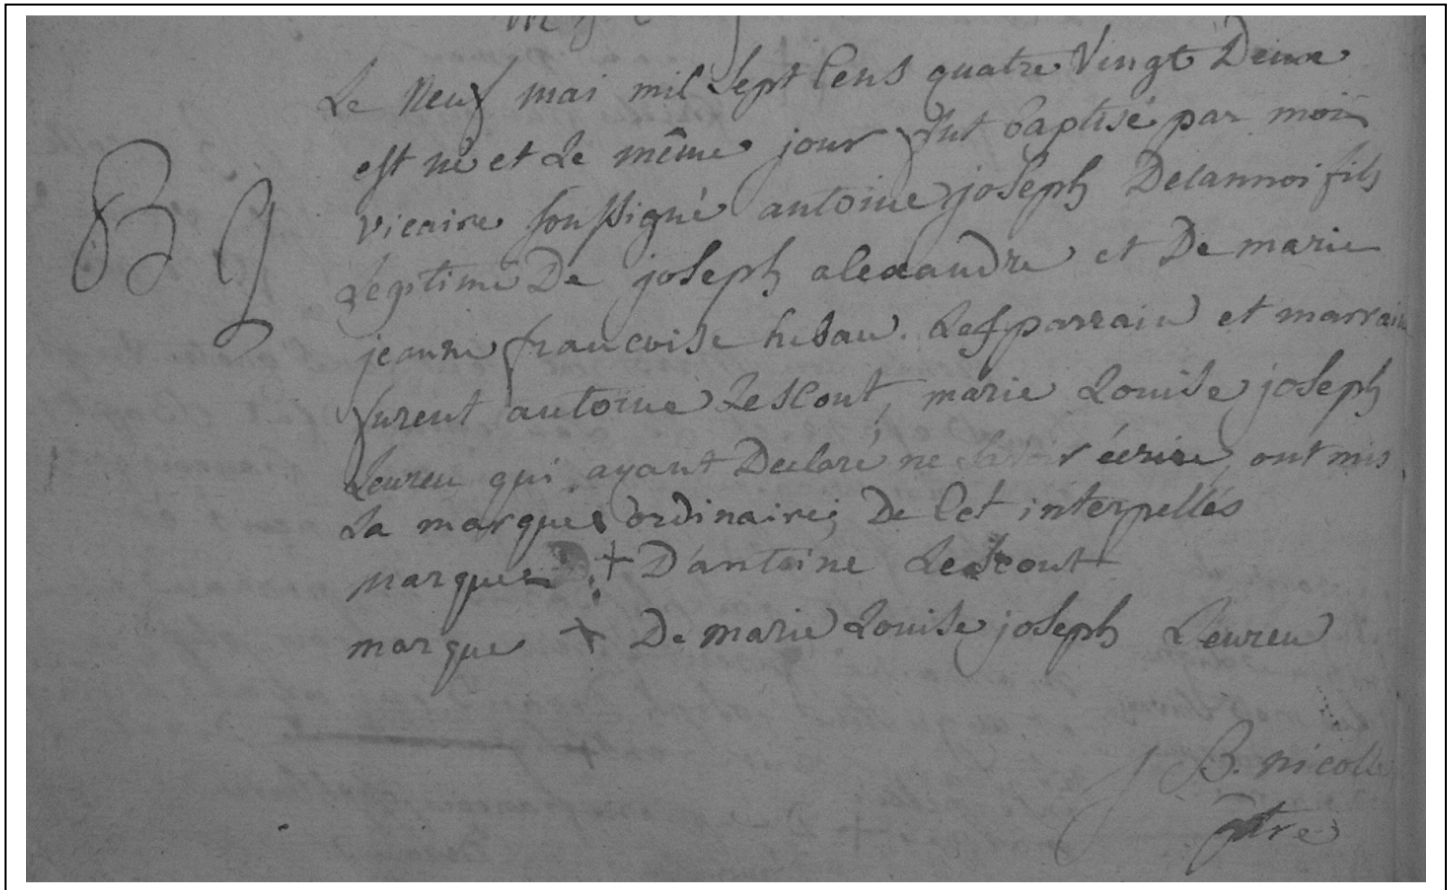 Le Neuf mai mil Sept Cens quatre Vingt Deux
est né et Le même jour fut baptisé par moi
vicaire soussigné antoine joseph Delannoi fils
Legitime De joseph alexandre et De marie
B 9
jeanne francoise hesau. Les parrain et marraine
furent antoine Lescout, marie Louise joseph
Leureu qui ayant Declaré ne savoir écrire ont mis
La marque ordinaire; De Cet interpellés
marque + D'antoine Lescout
marque + De marie Louise joseph Leureu
J B. nicolle
ptre